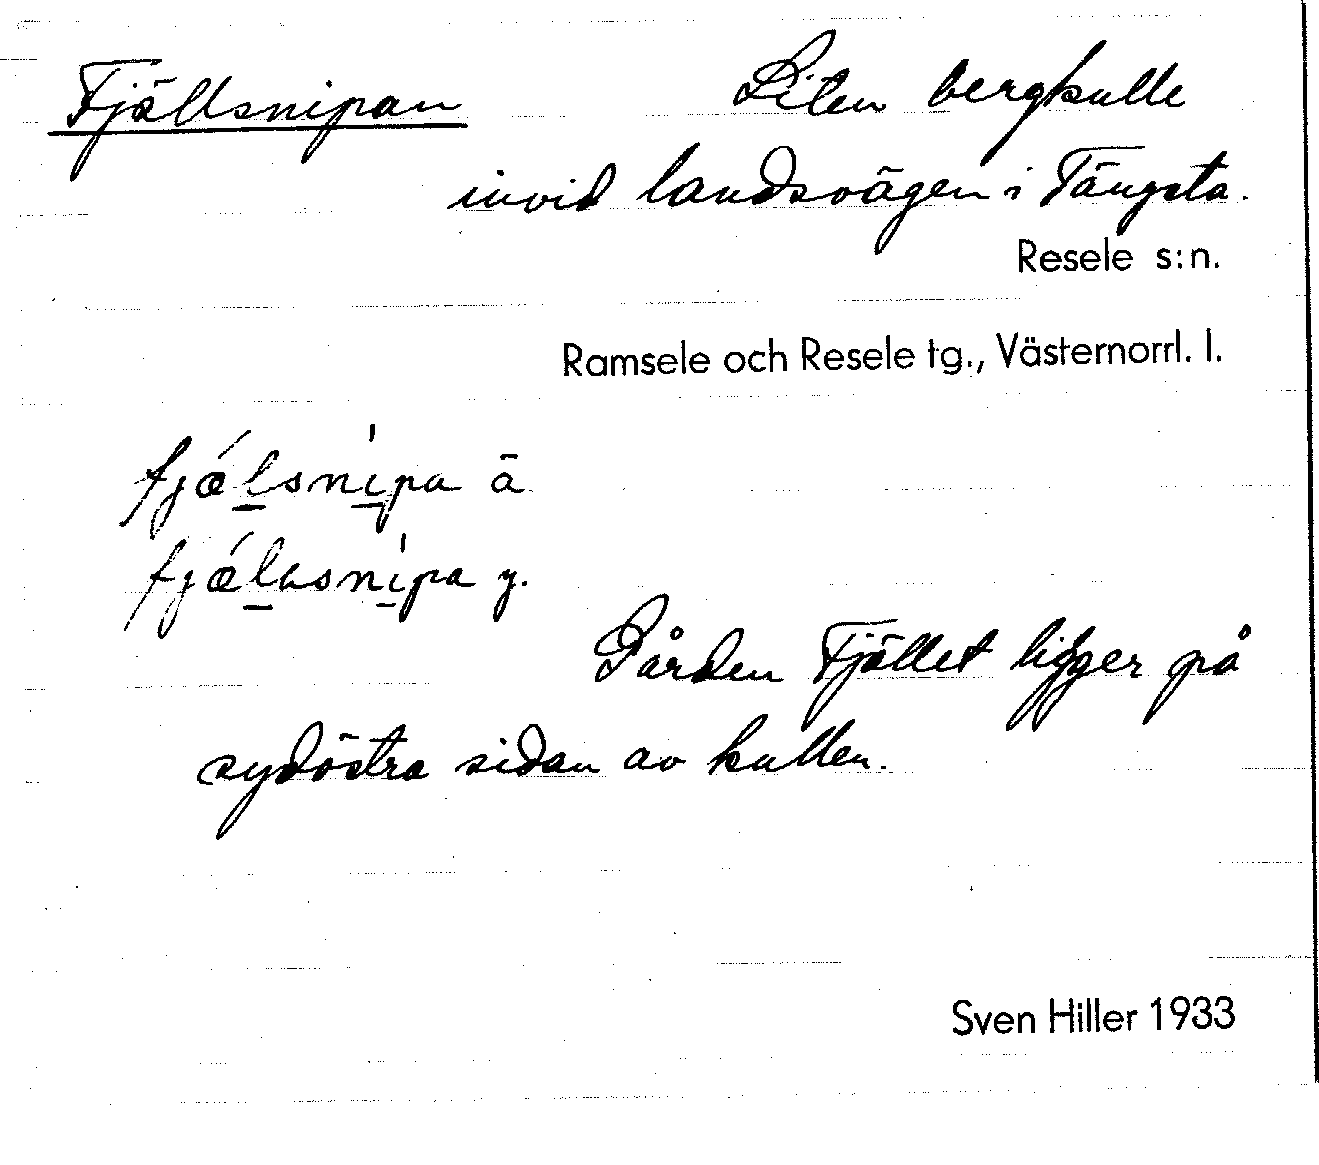 Fjällsnipan Liten bergkulle
invid landsvägen i Tängsta.
Resele s:n.
Ramsele och Resele tg., Västernorrl. l.
fjǽlsnìpa ä
y.
Gården Fjället ligger på
sydöstra sidan av kullen.
Sven Hiller 1933